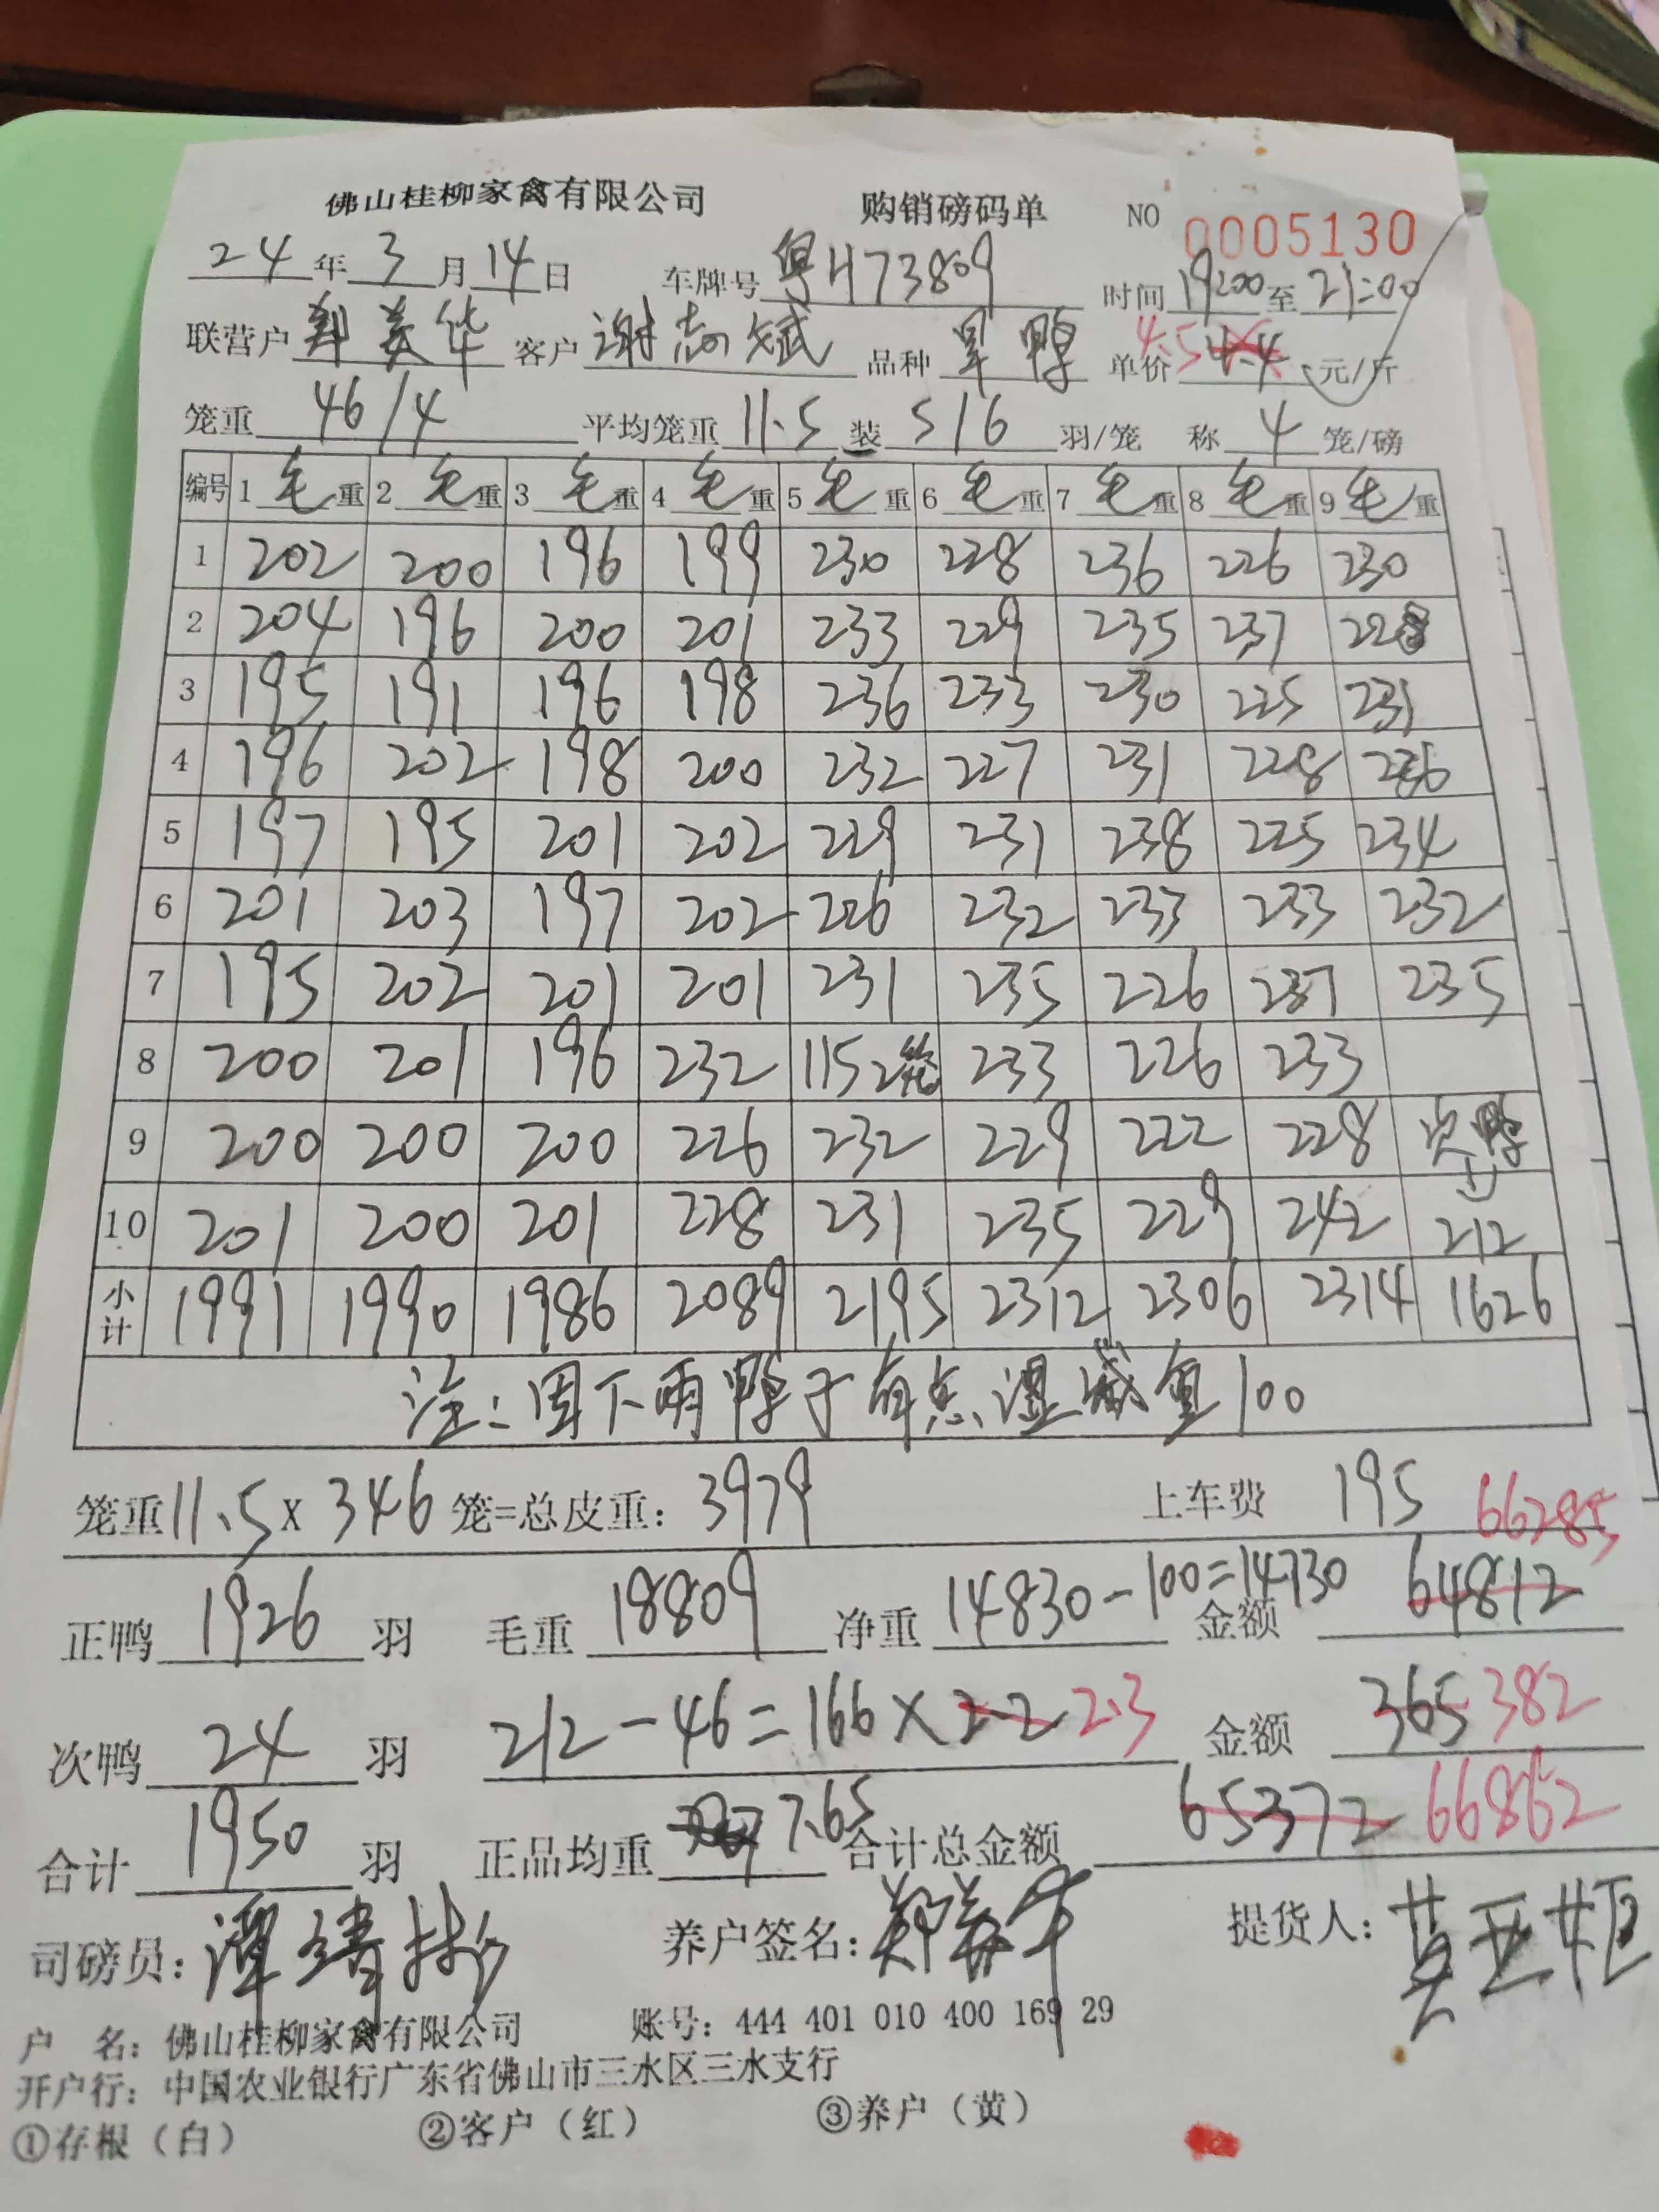 佛山桂柳家禽有限公司 购销磅码单 NO 0005130
24年3月14日 车牌号 粤H73809 时间 19:00至21:00
联营户 郑美华 客户 谢志斌 品种 旱鸭 单价 4.4 4.5 元/斤
笼重 46/4 平均笼重 11.5 装 5/6 羽/笼 称 4 笼/磅
编号 1 毛重 2 毛重 3 毛重 4 毛重 5 毛重 6 毛重 7 毛重 8 毛重 9 毛重
1 202 200 196 199 230 228 236 226 230
2 204 196 200 201 233 229 235 237 228
3 195 191 196 198 236 233 230 225 231
4 196 202 198 200 232 227 231 228 236
5 197 195 201 202 229 231 238 225 234
6 201 203 197 202 226 232 233 233 232
7 195 202 201 201 231 235 226 237 235
8 200 201 196 232 115 2笼 233 226 233
9 200 200 200 226 232 229 222 228 次鸭
10 201 200 201 228 231 235 229 242 212
小计 1991 1990 1986 2089 2195 2312 2306 2314 1626
注:因下雨鸭子有点湿减重100
笼重11.5×346笼=总皮重:3979 上车费 195 66285
正鸭 1926 羽 毛重 18809 净重 14830-100=14730 金额 64812
次鸭 24 羽 212-46=166×2.2 2.3 金额 365 382
合计 1950 羽 正品均重 7.65 合计总金额 65372 66862
司磅员: 养户签名:郑美华 提货人:
户 名:佛山桂柳家禽有限公司 账号:444 401 010 400 169 29
开户行:中国农业银行广东省佛山市三水区三水支行
①存根(白) ②客户(红) ③养户(黄)